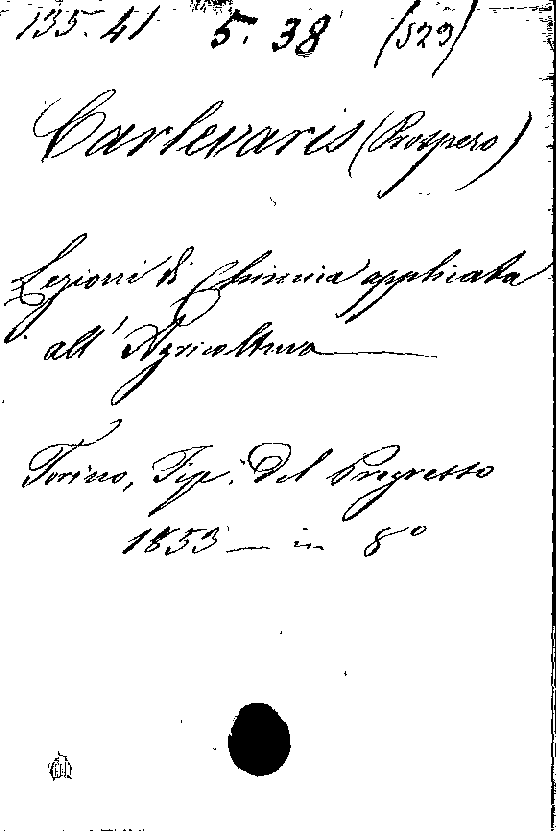 135. 41 5. 38 (523)
Carlevaris (Prospero)
Lezioni di Chimica applicata
all' Agricoltura
Torino, Tip. del Progresso
1853 — in 8°